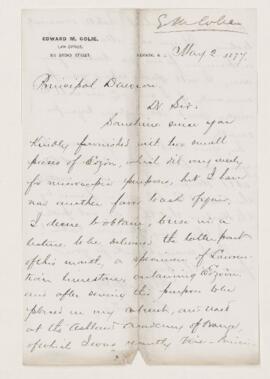 E M Colie
EDWARD M. COLIE,
LAW OFFICE,
BROAD STREET.
NEWARK, N. J. May 2 1877
Principal Dawson
Dr Sir.
Sometime since you
kindly furnished with two small
pieces of Eozoon, which did very nicely
for microscopic purposes, but I have
now another favor to ask of you.
I desire to obtain, to use in a
lecture to be delivered the latter part
of this month, a specimen of Lauren-
tian limestone containing Eozoon
and after serving this purpose to be
placed in my cabinet, and used
at the Academy of Orange,
of which I was recently